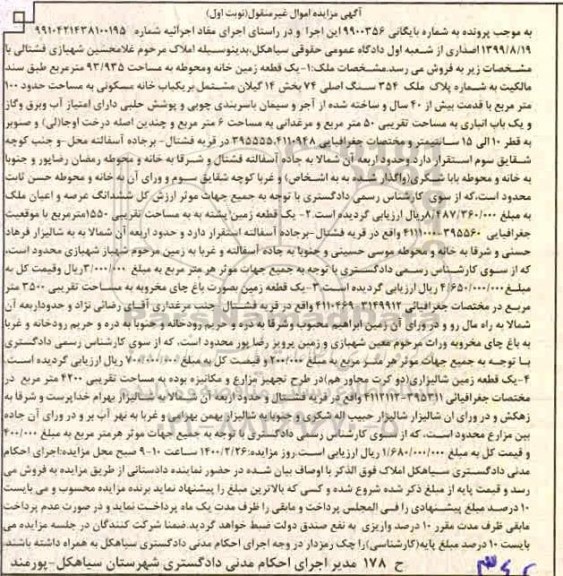 آگهی مزایده اموال غیرمنقول(نوبت اول)
به موجب پرونده به شماره بایگانی ۹۹۰۰۳۵۶ این اجرا و در راستای اجرای مفاد اجرائیه شماره ۹۹۱۰۴۲۱۴۳۸۱۰۰۱۹۵
۱۳۹۹/۸/۱۹ اصداری از شعبه اول دادگاه عمومی حقوقی سیاهکل،بدینوسیله املاک مرحوم غلامحسین شهبازی فشتالی با
مشخصات زیر به فروش می رسد.مشخصات ملک:۱-یک قطعه زمین خانه ومحوطه به مساحت ۹۳/۹۳۵ مترمربع طبق سند
مالکیت به شماره پلاک ملک ۳۵۴ سنگ اصلی ۷۴ بخش ۱۴ گیلان مشتمل بریکباب خانه مسکونی به مساحت حدود ۱۰۰
متر مربع با قدمت بیش از ۴۰ سال و ساخته شده از آجر و سیمان باسربندی چوبی و پوشش حلبی دارای امتیاز آب وبرق وگاز
و یک باب انباری به مساحت تقریبی ۵۰ متر مربع و مرغدانی به مساحت ۶ متر مربع و چندین اصله درخت اوجا(لی) و صنوبر
به قطر ۱۰ الی ۱۵ سانتیمتر ومختصات جغرافیایی ۳۹۵۵۵۵،۴۱۱۰۹۴۸ در قریه فشتال- برجاده آسفالته محل-و جنب کوچه
شقایق سوم استقرار دارد.وحدود اربعه آن شمالا به جاده آسفالته فشتال و شرقا به خانه و محوطه رمضان رضاپور و جنوبا
به خانه و محوطه بابا شکری(واگذار شده به به اشخاص) و غربا کوچه شقایق سوم و ورای آن به خانه و محوطه حسن ثابت
محدود است،که از سوی کارشناس رسمی دادگستری با توجه به جمیع جهات موثر ارزش کل ششدانگ عرصه و اعیان ملک
به مبلغ ۸/۴۸۷/۳۶۰/۰۰۰ریال ارزیابی گردیده است.۲- یک قطعه زمین پشته به به مساحت تقریبی ۱۵۵۰مترمربع با موقعیت
جغرافیایی ۳۹۵۵۶۰-۴۱۱۱۰۰۰ واقع در قریه فشتال-برجاده آسفالته استقرار دارد و حدود اربعه آن شمالا به به شالیزار فرهاد
حسنی و شرقا به خانه و محوطه موسی حسینی و جنوبا به جاده آسفالته و غربا به زمین مرحوم شهباز شهبازی محدود است،
که از سوی کارشناس رسمی دادگستری با توجه به جمیع جهات موثر هر متر مربع به مبلغ ۳/۰۰۰/۰۰۰ریال وقیمت کل به
مبلغ۴/۶۵۰/۰۰۰/۰۰۰ ریال ارزیابی گردیده است.۳-یک قطعه زمین بصورت باغ چای مخروبه به مساحت تقریبی ۳۵۰۰ متر
مربع در مختصات جغرافیائی ۳۱۴۹۹۱۲-۴۱۱۰۴۶۹ واقع در قریه فشتال- جنب مرغداری آقای رضائی نژاد و حدوداربعه آن
شمالا به راه مال رو و در ورای آن زمین ابراهیم محبوب وشرقا به دره و حریم رودخانه و جنوبا به دره و حریم رودخانه و غربا
به باغ چای مخروبه وراث مرحوم معین شهبازی و زمین پرویز رضا پور محدود است، که از سوی کارشناس رسمی دادگستری
با توجه به جمیع جهات موثر هر متر مربع به مبلغ ۲۰۰/۰۰۰ و قیمت کل به مبلغ ۷۰۰/۰۰۰/۰۰۰ ریال ارزیابی گردیده است.
۴-یک قطعه زمین شالیزاری(دو کرت مجاور هم)در طرح تجهیز مزارع و مکانیزه بوده به مساحت تقریبی ۴۲۰۰ متر مربع در
مختصات جغرافیائی ۳۹۵۳۱۱-۴۱۱۲۱۱۲ واقع در قریه فشتال وحدود اربعه آن شمالا به شالیزار بهرام خداپرست و شرقا به
زهکش و در ورای ان شالیزار شالیزار حبیب اله شکری و جنوبا به شالیزار بهمن بهرامی و غربا به نهر آب بر و در ورای آن جاده
بین مزارع محدود است، که از سوی کارشناس رسمی دادگستری با توجه به جمیع جهات موثر هرمتر مربع به مبلغ ۴۰۰/۰۰۰
و قیمت کل به مبلغ ۱/۶۸۰/۰۰۰/۰۰۰ ریال ارزیابی است. روز مزایده:۱۴۰۰/۲/۲۶ ساعت ۱۰-۹ صبح محل مزایده:اجرای احکام
مدنی دادگستری سیاهکل املاک فوق الذکر با اوصاف بیان شده در حضور نماینده دادستانی از طریق مزایده به فروش می
رسد و قیمت پایه از مبلغ ذکر شده شروع شده و کسی که بالاترین مبلغ را پیشنهاد نماید برنده مزایده محسوب و می بایست
۱۰ درصد مبلغ پیشنهادی را فی المجلس پرداخت و مابقی را ظرف مدت یک ماه پرداخت نماید و در صورت عدم پرداخت
مابقی ظرف مدت مقرر ۱۰ درصد واریزی به نفع صندق دولت ضبط خواهد گردید.ضمنا شرکت کنندگان در جلسه مزایده می
بایست ۱۰ درصد مبلغ پایه(کارشناسی)را چک رمزدار در وجه اجرای احکام مدنی دادگستری سیاهکل به همراه داشته باشند.
ح ۱۷۸ مدیر اجرای احکام مدنی دادگستری شهرستان سیاهکل-پورمند